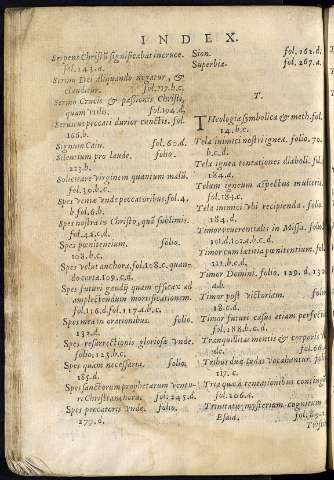 INDEX.
Serpens Christũ significabat in cruce.
fol. 143. a.
Sermo Dei aliquando negatur, &
clauditur. fol. 117. b. c.
Sermo Crucis & passionis Christi,
quam vtilis. fol. 104. d.
Seruitus peccati durior cunctis. fol.
166. b.
Signum Cain. fol. 60. d.
Silentium pro laude. folio.
223. b.
Solicitare virginem quantum malũ.
fol. 30. b. c.
Spes veniæ vnde peccatoribus. fol. 4.
b. fol. 6. b.
Spes nostra in Christo, quã sublimis.
fol. 42. c. d.
Spes pœnitentium. folio.
108. b. c.
Spes velut anchora. fol. 108. c. quan-
do certa. 109. c. d.
Spes futuri gaudij quam efficax ad
amplectendum mortificationem.
fol. 116. d. fol. 117. a. b. c.
Spes mira in orationibus. folio.
232. d.
Spes resurrectionis gloriosæ vnde.
folio. 125. b. c.
Spes quam necessaria. folio.
185. d.
Spes sanctorum prophetarum ventu-
ri Christi anchora. fol. 245. d.
Spes peccatoris vnde. folio.
277. d.
Sion. fol. 162. d.
Superbia. fol. 267. a.
T.
THeologia symbolica & meth. fol.
14. b. c.
Tela inimici nostri ignea. folio. 70.
b. c. d.
Tela ignea tentationes diaboli. fol.
184. a.
Telum igneum aspectus mulieris.
fol. 184. c.
Tela inimici vbi recipienda. folio.
184. d.
Timor reuerentialis in Missa. folio.
101. d. 102. a. b. c. d.
Timor cum lætitia pœnitentium. fol.
111. b. c. d.
Timor Domini. folio. 129. d. 130.
a. b.
Timor post victoriam. folio.
18. c. d.
Timor futuri casus etiam perfectis.
fol. 188. b. c. d.
Tranquilitas mentis & corporis
fol. 66.
Tribus duæ Iudas vocabantur. fol.
117. c.
Tria quæ à tentationibus contingunt
fol. 206. a.
Trinitatis mysterium cognitum
Esaiæ. fol. 89.